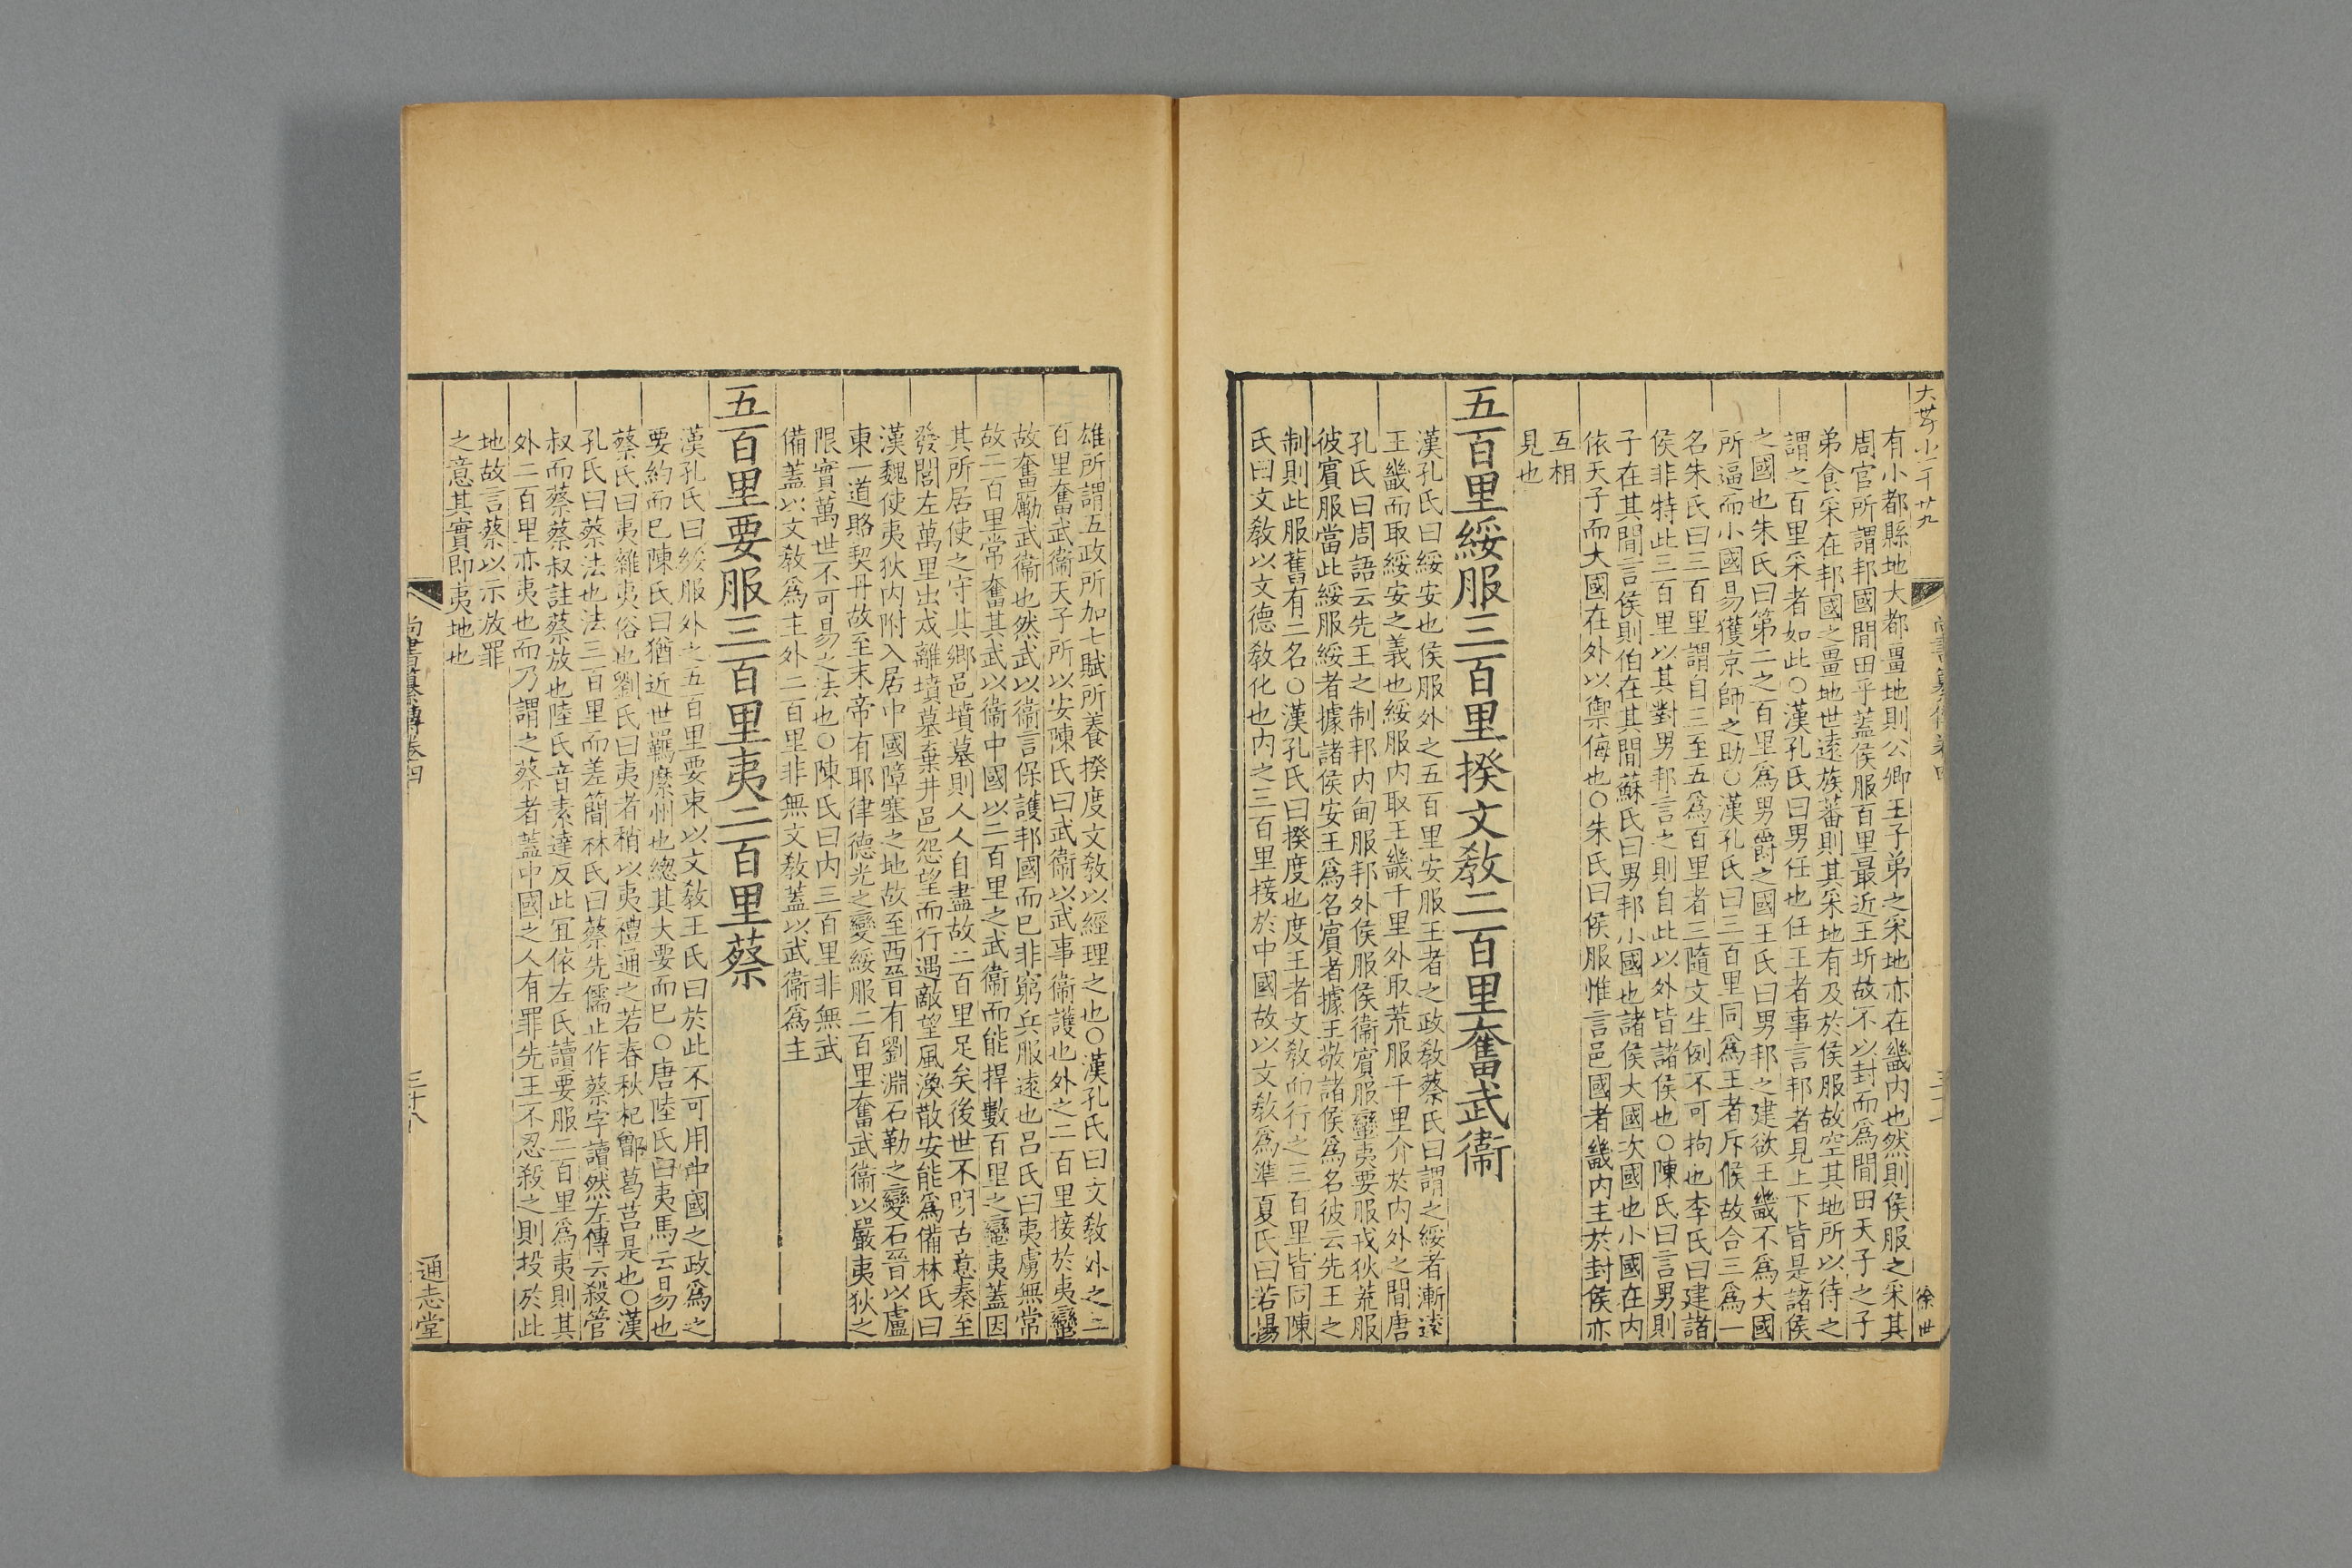 大廿小二千廿九
徐世
有小都縣地大都畺地則公卿王子弟之采地亦在畿内也然則侯服之采其
周官所謂邦國間田乎蓋侯服百里最近王圻故不以封而爲間田天子之子
弟食采在邦國之畺地世遠族蕃則其采地有及於侯服故空其地所以待之
謂之百里采者如此○漢孔氏曰男任也任王者事言邦者見上下皆是諸侯
之國也朱氏曰第二之百里爲男爵之國王氏曰男邦之建欲王畿不爲大國
所逼而小國易獲京師之助○漢孔氏曰三百里同爲王者斥候故合三爲一
名朱氏曰三百里謂自三至五爲百里者三隨文生例不可拘也李氏曰建諸
侯非特此三百里以其對男邦言之則自此以外皆諸侯也○陳氏曰言男則
子在其間言侯則伯在其間蘇氏曰男邦小國也諸侯大國次國也小國在内
依天子而大國在外以禦侮也○朱氏曰侯服惟言邑國者畿内主於封侯亦
互相
見也
五百里綏服三百里揆文教二百里奮武衞
漢孔氏曰綏安也侯服外之五百里安服王者之政教蔡氏曰謂之綏者漸遠
王畿而取綏安之義也綏服内取王畿千里外取荒服千里介於内外之間唐
孔氏曰周語云先王之制邦内甸服邦外侯服侯衞賓服蠻夷要服戎狄荒服
彼賓服當此綏服綏者據諸侯安王爲名賓者據王敬諸侯爲名彼云先王之
制則此服舊有二名○漢孔氏曰揆度也度王者文教而行之三百里皆同陳
氏曰文教以文德教化也内之三百里接於中國故以文教爲準夏氏曰若揚
雄所謂五政所加七賦所養揆度文教以經理之也○漢孔氏曰文教外之二
百里奮武衞天子所以安陳氏曰武衞以武事衞護也外之二百里接於夷蠻
故奮勵武衞也然武以衞言保護邦國而已非窮兵服遠也吕氏曰夷虜無常
故二百里常奮其武以衞中國以二百里之武衞而能捍數百里之蠻夷蓋因
其所居使之守其鄉邑墳墓則人人自盡故二百里足矣後世不明古意秦至
發閭左萬里出戍離墳墓棄井邑怨望而行遇敵望風渙散安能爲備林氏曰
漢魏使夷狄内附入居中國障塞之地故至西晉有劉淵石勒之變石晉以盧
東一道賂契丹故至末帝有耶律德光之變綏服二百里奮武衞以嚴夷狄之
限實萬世不可易之法也○陳氏曰内三百里非無武
備蓋以文教爲主外二百里非無文教蓋以武衞爲主
五百里要服三百里夷二百里蔡
漢孔氏曰綏服外之五百里要束以文教王氏曰於此不可用中國之政爲之
要約而已陳氏曰猶近世羈縻州也總其大要而已○唐陸氏曰夷馬云易也
蔡氏曰夷雜夷俗也劉氏曰夷者稍以夷禮通之若春秋杞鄫葛莒是也○漢
孔氏曰蔡法也法三百里而差簡林氏曰蔡先儒止作蔡字讀然左傳云殺管
叔而蔡蔡叔註蔡放也陸氏音素達反此宜依左氏讀要服二百里爲夷則其
外二百里亦夷也而乃謂之蔡者蓋中國之人有罪先王不忍殺之則投於此
地故言蔡以示放罪
之意其實即夷地也
尚書纂傳卷四
三十八
通志堂